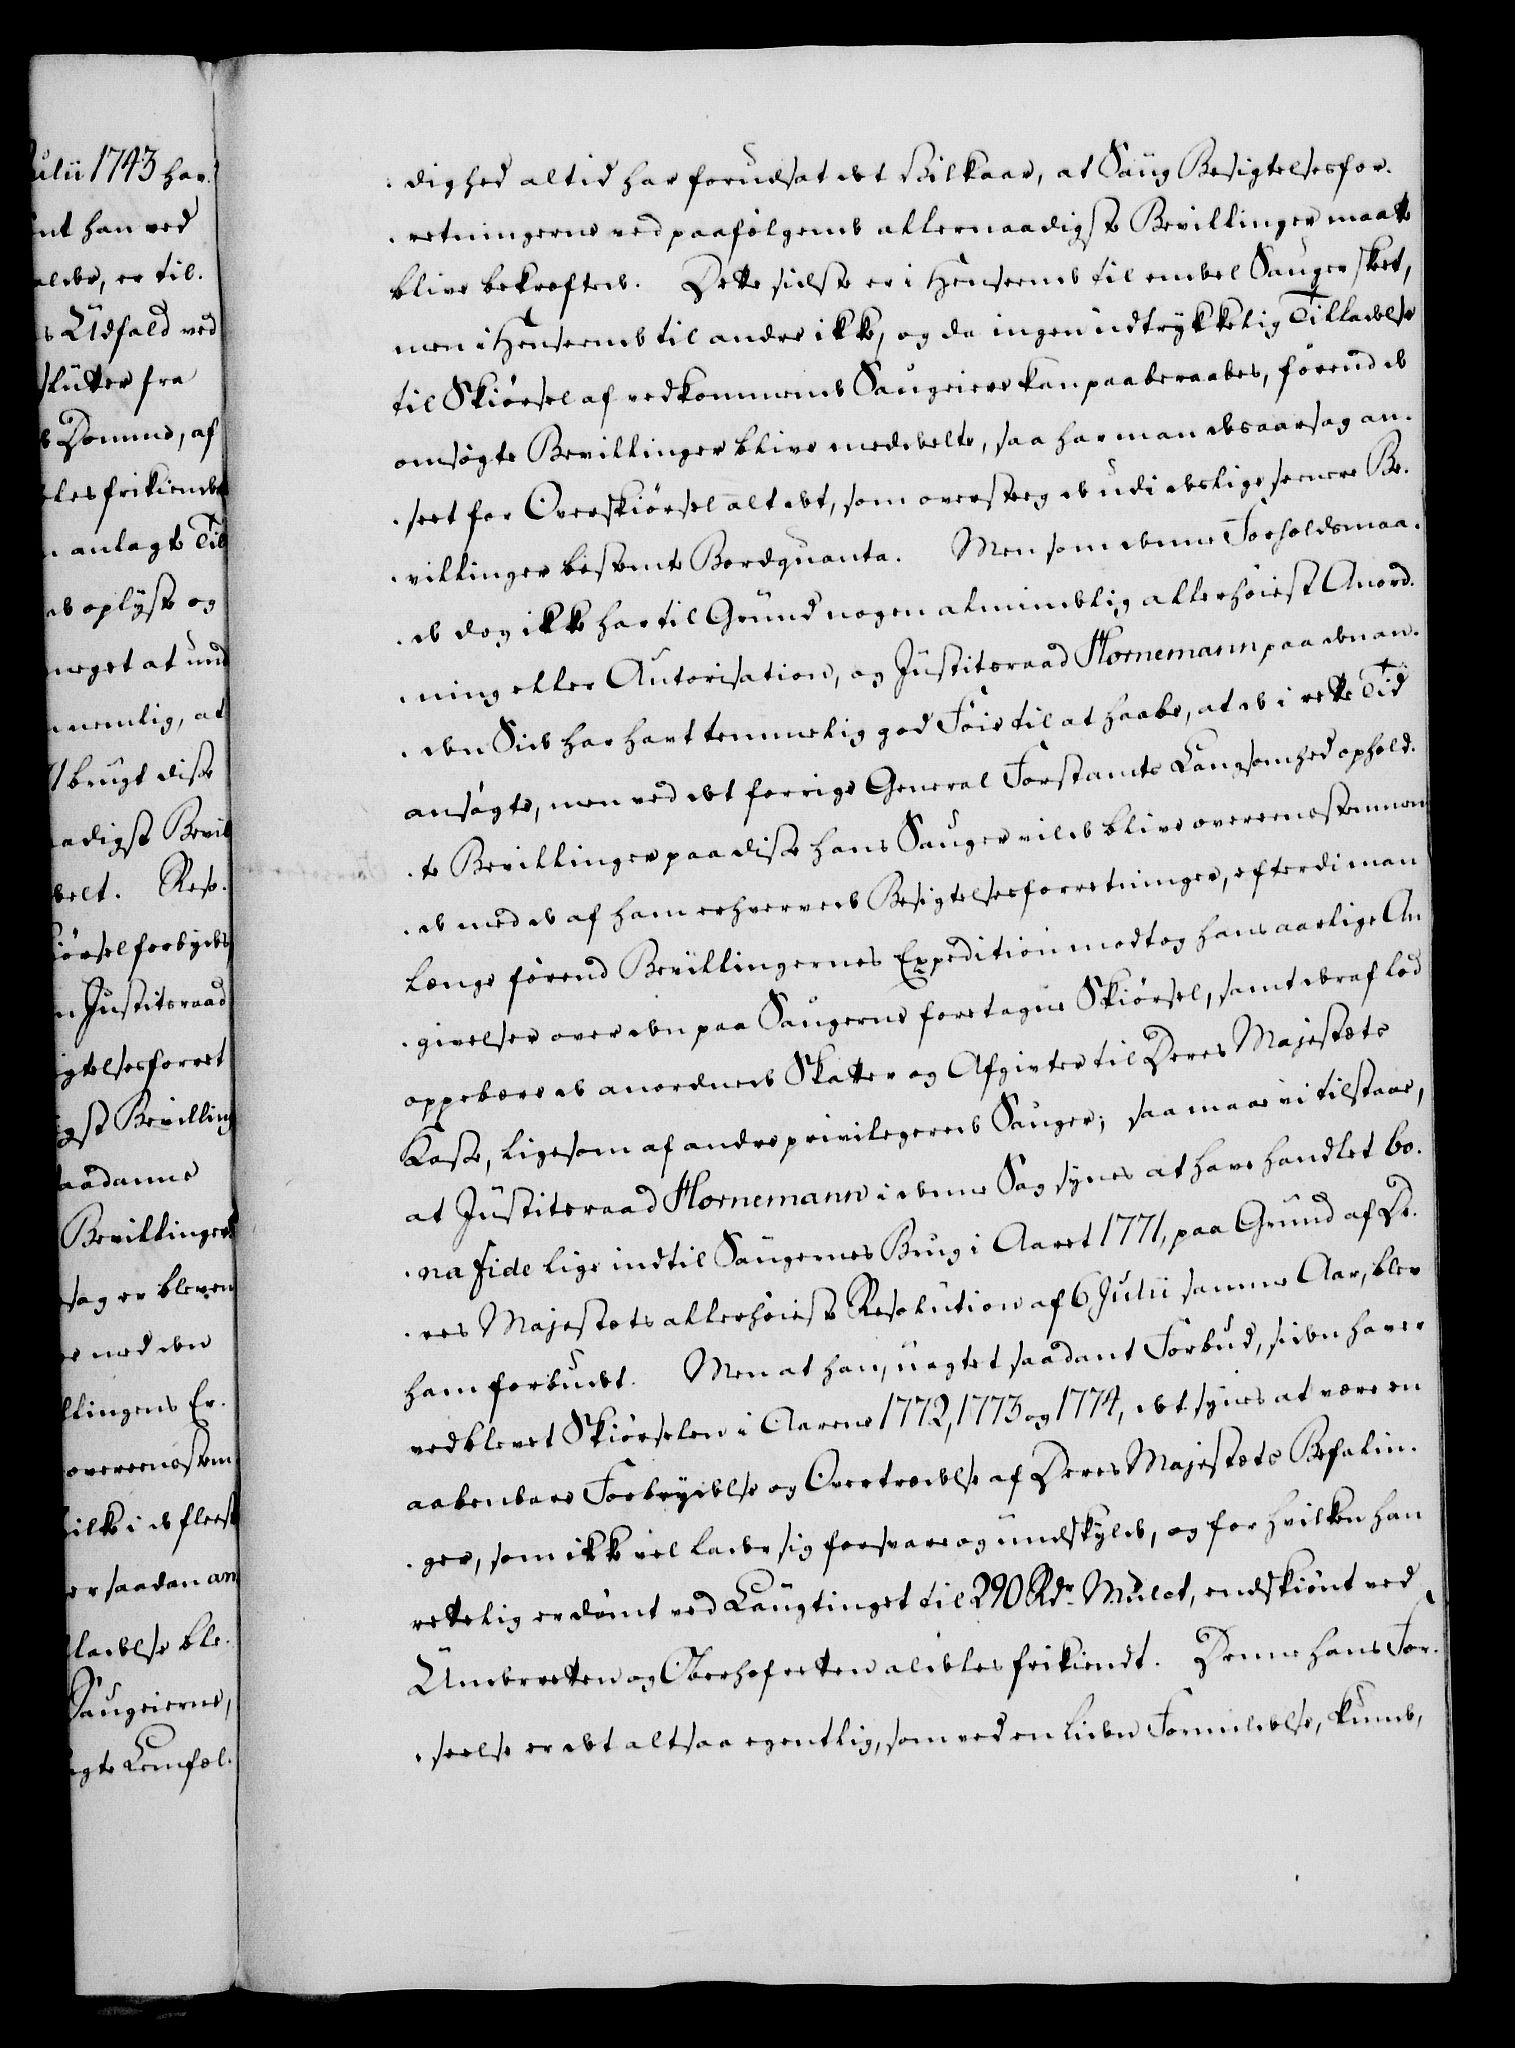 ulii 1743 har
nt han ved
alder, er til-
s Udfald ved
slutter fra
Domme, af
eles frikiende
anlagte Til
de oplyste og
meget at und
nemlig, at
brugt disse
aadigst Bevil
delt. Reso-
iørsel forbydes
n Justitsraad
igtelsesforret
igst Bevilling
aadanne
Bevillinger
sag er bleven
med den
llingens Er-
overeensstem
ilke i de fleest
er saadan an
ladelse ble-
Saugeierne,
gte Lemfæl-
-dighed altid har forudsat det Vilkaar, at Saug Besigtelsesfor-
-retningerne ved paafølgende allernaadigste Bevillinger maatte
blive bekræftede. Dette sidste er i Henseende til endeel Sauger skeet,
men i Henseende til andre ikke, og da ingen udtrykkelig Tilladelse
til Skiørsel af vedkommende Saugeiere kan paaberaabes, førend de
omsøgte Bevillinger blive meddeelte, saa har man desaarsag an-
-seet for Overskiørsel alt det, som oversteg de udi deslige seenere Be-
-villinger bestemte Bordquanta. Men som denne Forholdsmaa-
-de dog ikke har til Grund nogen almindelig allerhøiest Anord-
-ning eller Autorisation, og Justitsraad Hornemann paa den an-
-den Side har havt temmelig god Føie til at haabe, at de i rette Tid
ansøgte, men ved det forrige General Forstamts Langsomhed ophold-
-te Bevillinger paa disse hans Sauger vilde blive overeensstemmen
-de med de af ham erhvervede Besigtelsesforretninger, efterdi man
længe førend Bevillingernes Expedition modtog hans aarlige An
-givelser over den paa Saugerne foretagne Skiørsel, samt deraf lod
oppebære de anordnede Skatter og Afgivter til Deres Majestæts
Kasse, ligesom af andre privilegerede Sauger; saa maae vi tilstaae,
at Justitsraad Hornemann i denne Sag synes at have handlet bo-
-na fide lige indtil Saugernes Brug i Aaret 1771, paa Grund af De-
-res Majestæts allerhøieste Resolution af 6 Julii samme Aar, blev
ham forbudet. Men at han, uagtet saadant Forbud, siden haver
vedblevet Skiørselen i Aarene 1772, 1773 og 1774, det synes at være en
aabenbare Forbrydelse og Overtrædelse af Deres Majestæts Befalin-
-ger, som ikke vel lader sig forsvare og undskylde, og for hvilken han
rettelig er dømt ved Laugtinget til 290 Rdr Mulct, endskiønt ved
Underretten og Overhofretten aldeles frikiendt. Denne hans For-
-seelse er det altsaa egentlig, som ved en liden Formildelse, kunde,